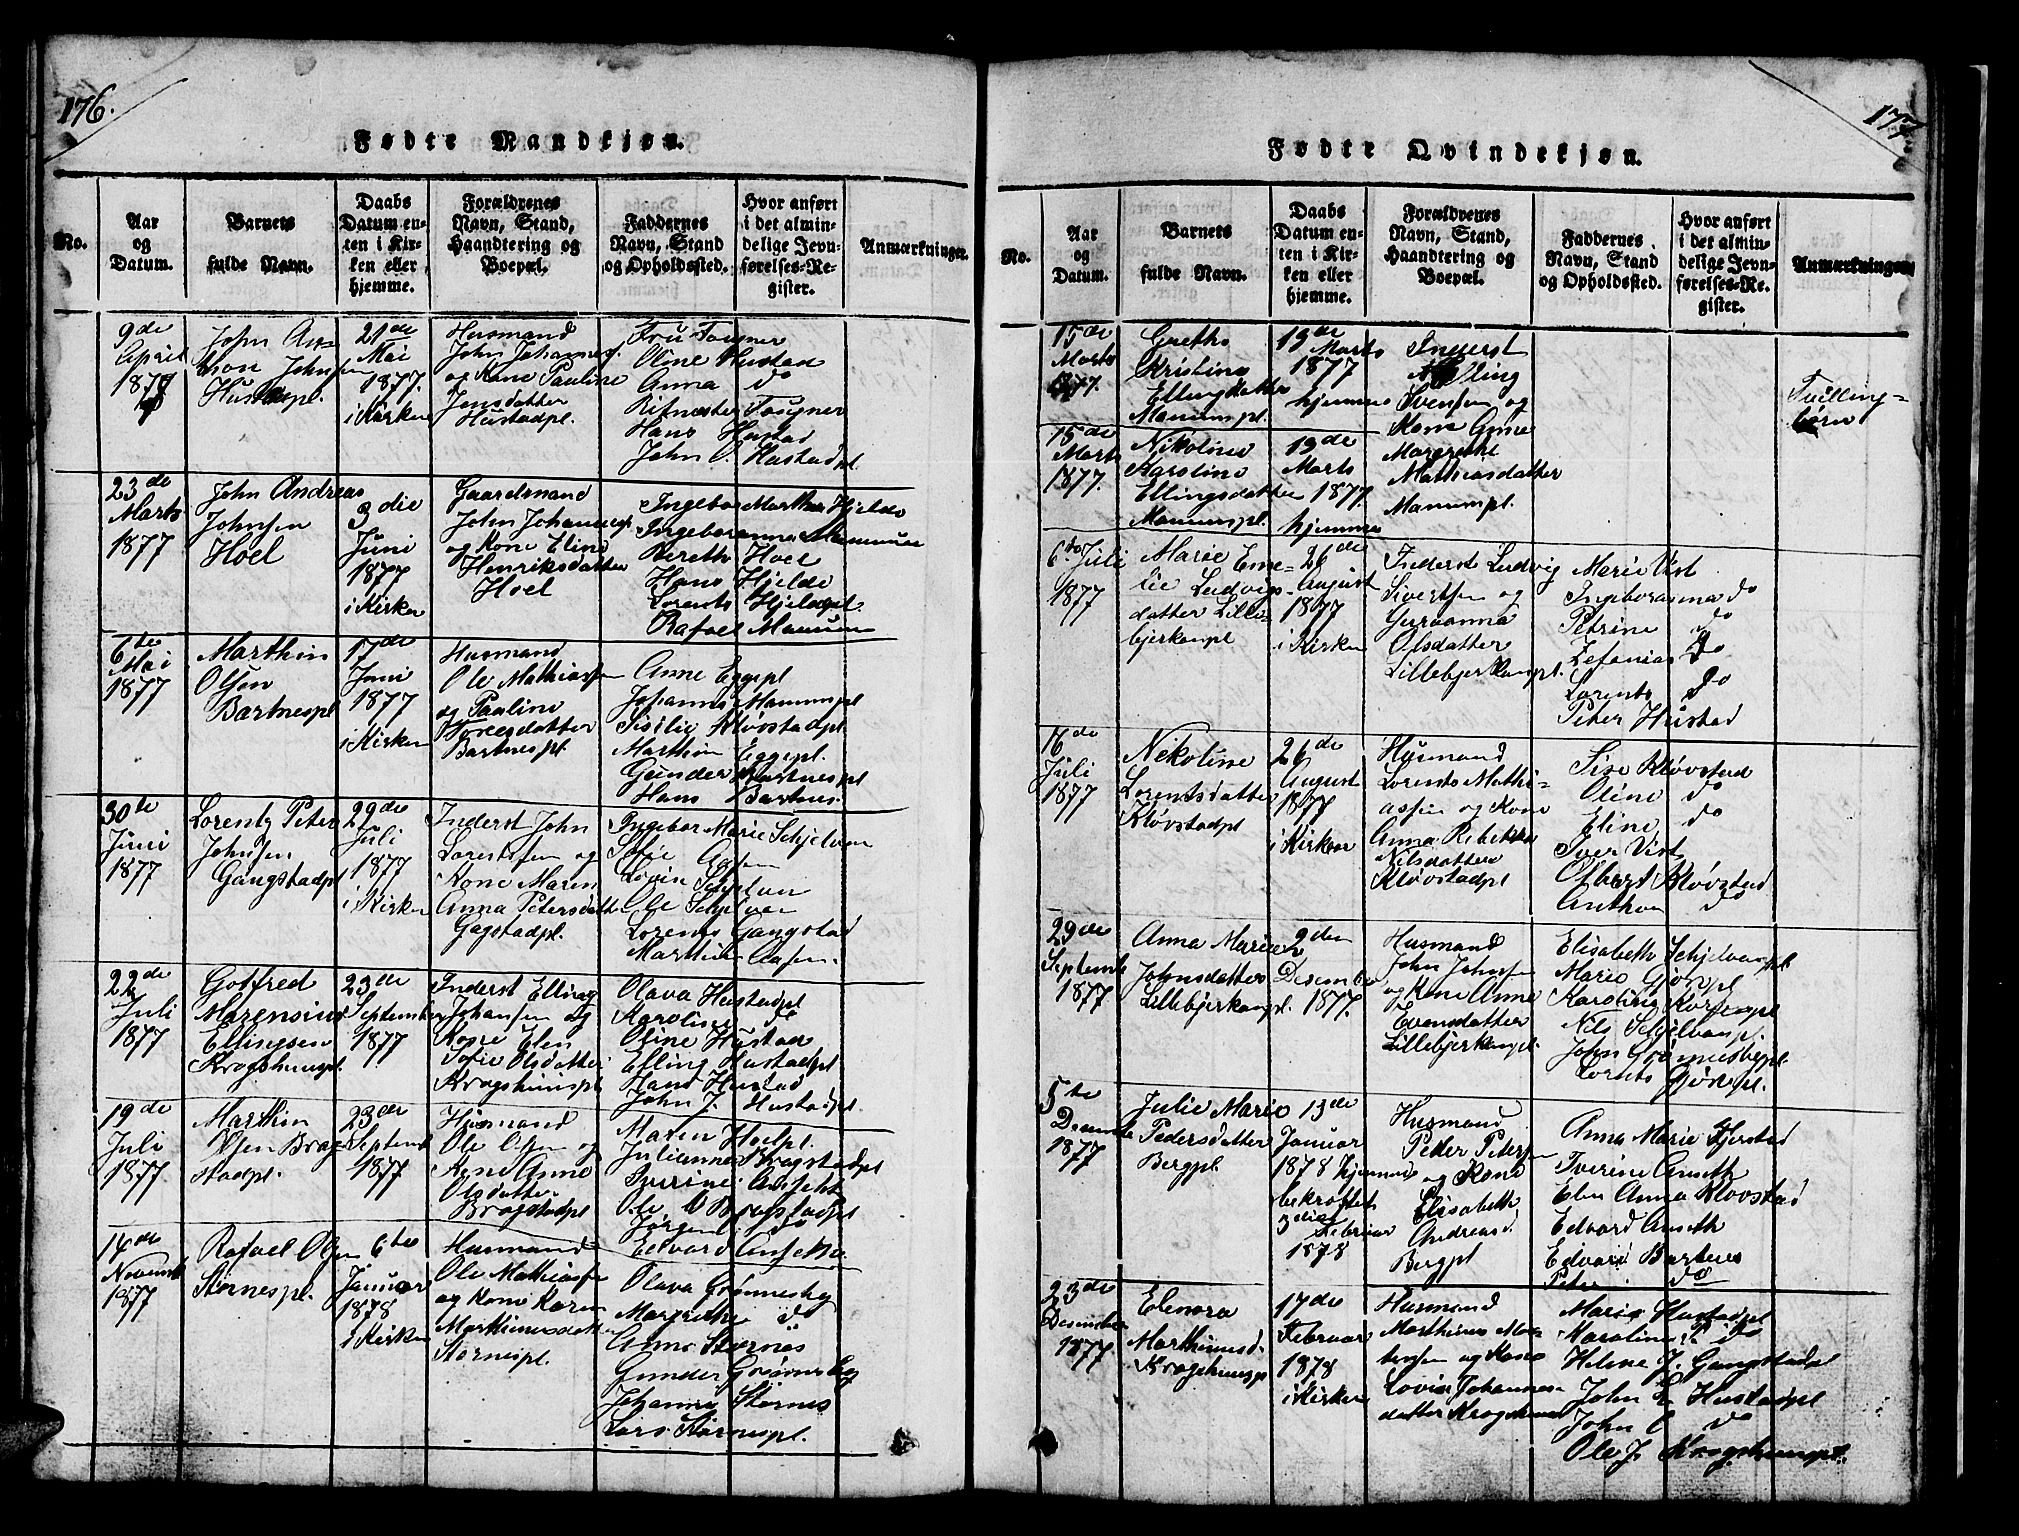 176.
Fødte Mandkjøn.
No.
Aar
og
Datum.
Barnets
fulde Navn.
Daabs
Datum en-
ten i Kir-
ken eller
hjemme.
Forældrenes
Navn, Stand,
Haandtering og
Boepæl.
Faddernes
Navn, Stand
og Opholdssted.
Hvor anført
i det almin-
delige Jevn-
førelses-Re-
gister.
Anmærkninger.
9de
April
1877
John An-
ton Johnsen
Hustadpl.
21de
Mai
1877.
i Kirken
Husmand
John Johannes.
og Kone Pauline
Jensdatter
Hustadpl.
Oline Hustad
Anna do
Hans Hustad
John O. Hustadpl.
23de
Marts
1877
John Andreas
Johnsen
Hoel
3die
Juni
1877
i Kirken
Gaardmand
John Johannes.
og Kone Eline
Henriksdatter
Hoel
Ingebor Martha Hjelde
Ingeboranna Mamuen
Bereth Hoel
Hans Hjelde
Lorents Hjeldepl.
Rafael Mamuen
6te
Mai
1877
Marthin
Olsen
Bartnespl
17de
Juni
1877
i Kirken
Husmand
Ole Mathiassen
og Pauline
Toresdatter
Bartnespl.
Anne Eggepl.
Johannes Mamumpl
Sisilie Kløvstadpl.
Marthin Eggepl.
Gunder Bartnespl
Hans Bartnes.
30te
Juni
1877
Lorents Peter
Johnsen
Gangstadpl
29de
Juli
1877
i Kirken
Inderst John
Lorentsen og
Kone Maren
Anna Petersdatter
Gagstadpl.
Ingebor Marie Schjelvan
Sofie Aasen
Lovise Schjelvan
Ole Schjelvan
Lorents Gangstad
Marthin Aasen.
22de
Juli
1877
Gotfred
Marensius
Ellingsen
Kragshaugpl.
23de
September
1877
Inderst Elling
Johansen og
Kone Elen
Sofie Olsdatter
Olava Hustadpl
Karoline do
Oline Hustad
Elling Hustadpl
Hans Hustad
John J. Hustadpl.
19de
Juli
1877
Marthin
Olsen Brag-
stadpl.
23de
Septemb
1877
Husmand
Ole Olsen og
Kone Anne
Olsdatter
Bragstadpl
Maren Hoelpl.
Julianne Bragstadpl
Iverine
Ole O Bragstadpl
Jørgen do
Edvard
14de
Novemb
1877
Rafael Olsen
Stornespl.
6te
Januar
1878
i Kirken
Husmand
Ole Mathiassen
og Kone Karen
Marthinusdatter
Stornespl.
Olava Grønnesby
Margrethe do
Anne Stornes
Gunder Grønnesby
Johannes Stornes
Lars Stornespl.
177.
Fødte Qvindekjøn.
No.
Aar
og
Datum.
Barnets
fulde Navn.
Daabs
Datum en-
ten i Kir-
ken eller
hjemme.
Forældrenes
Navn, Stand,
Haandtering og
Boepæl.
Faddernes
Navn, Stand
og Opholdssted.
Hvor anført
i det almin-
delige Jevn-
førelses-Re-
gister.
Anmærkninger
15de
Marts
1877.
Grethe
Kristine
Ellingsdatter
Mamumspl.
19de
Marts
1877
hjemme
Inderst
Elling
Svensen og
Kone Anne
Margrethe
Mathiasdatter
Mamumpl.
Tvilling-
børn
15de
Marts
1877.
Nikoline
Karoline
Ellingsdatter
Mamumspl.
19de
Marts
1877.
hjemme
6te Juli
1877
Marie Eme-
lie Ludvigs-
datter Lille-
bjerkenpl
26de
August
1877
i Kirken
Inderst Ludvig
Sivertsen og
Guruanna
Olsdatter
Lillebjerkenpl.
Marie Vist
Ingeboranna do
Petrine do
Zefanias do
Lorents do
Peter Hustad
16de
Juli
1877
Nekoline
Lorentsdatter
Kløvstadpl
26de
August
1877
i Kirken
Husmand
Lorents Mathi-
assen og Kone
Anna Rebekka
Nilsdatter
Kløvstadpl
Sise Kløvstad
Oline do
Eline do
Iver Vist
Olbert Kløvstad
Anthon do
29de
Septembe
1877
Anna Marie
Johnsdatter
Lillebjerkenpl.
2den
Desember
1877.
Husmand
John Johnsen
og Kone Anne
Evensdatter
Lillebjerkenpl.
Elisabeth Schjelvanpl.
Marie Gjørvpl
Karoline Korsenpl
Nils Schjelvanpl.
John Grønnesbypl
Lornts Gjørvpl.
5te
Desembe
1877
Julie Marie
Pedersdatter
Bergpl.
13de
Januar
1878 hjemme
bekræftet
3die
Februar
1878
Husmand
Peder Petersen
og Kone
Elisabeth
Andreasd
Bergpl
Anna Marie Hjerstad
Iverine Auseth
Elen Anna Kløvstad
Edvard Auseth
Edvard Bartnes
Peter do
23de
Desember
1877
Elenora
Marthinusd.
Kragshaugpl
17de
Februar
1878
i Kirken
Husmand
Marthinus Mor-
tensen og Kone
Lovise Johannes-
datter
Marie Hustadpl
Karoline do
Helene J. Gangstadpl
John E Hustadpl
John O do
Ole J. Kragshaugpl.